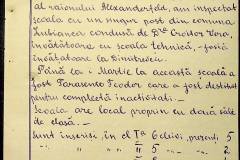 al raionului Alexanderfeld, am inspectat
școala cu un singur post din comuna
condusă de D-ra Croitor Vera,
învățătoare cu școala tehnică, - fostă
învățătoare la Dimitrievca.
Până la 1 Martie la această școală a
fost Tarasente Teodor care a fost destituit
pentru complectă inactivitate. -
Școala are local propriu cu două săli
de clasă. -
Sunt înscriși în cl. I-a 6 elevi, prezenți 5
" II 5 " " 2